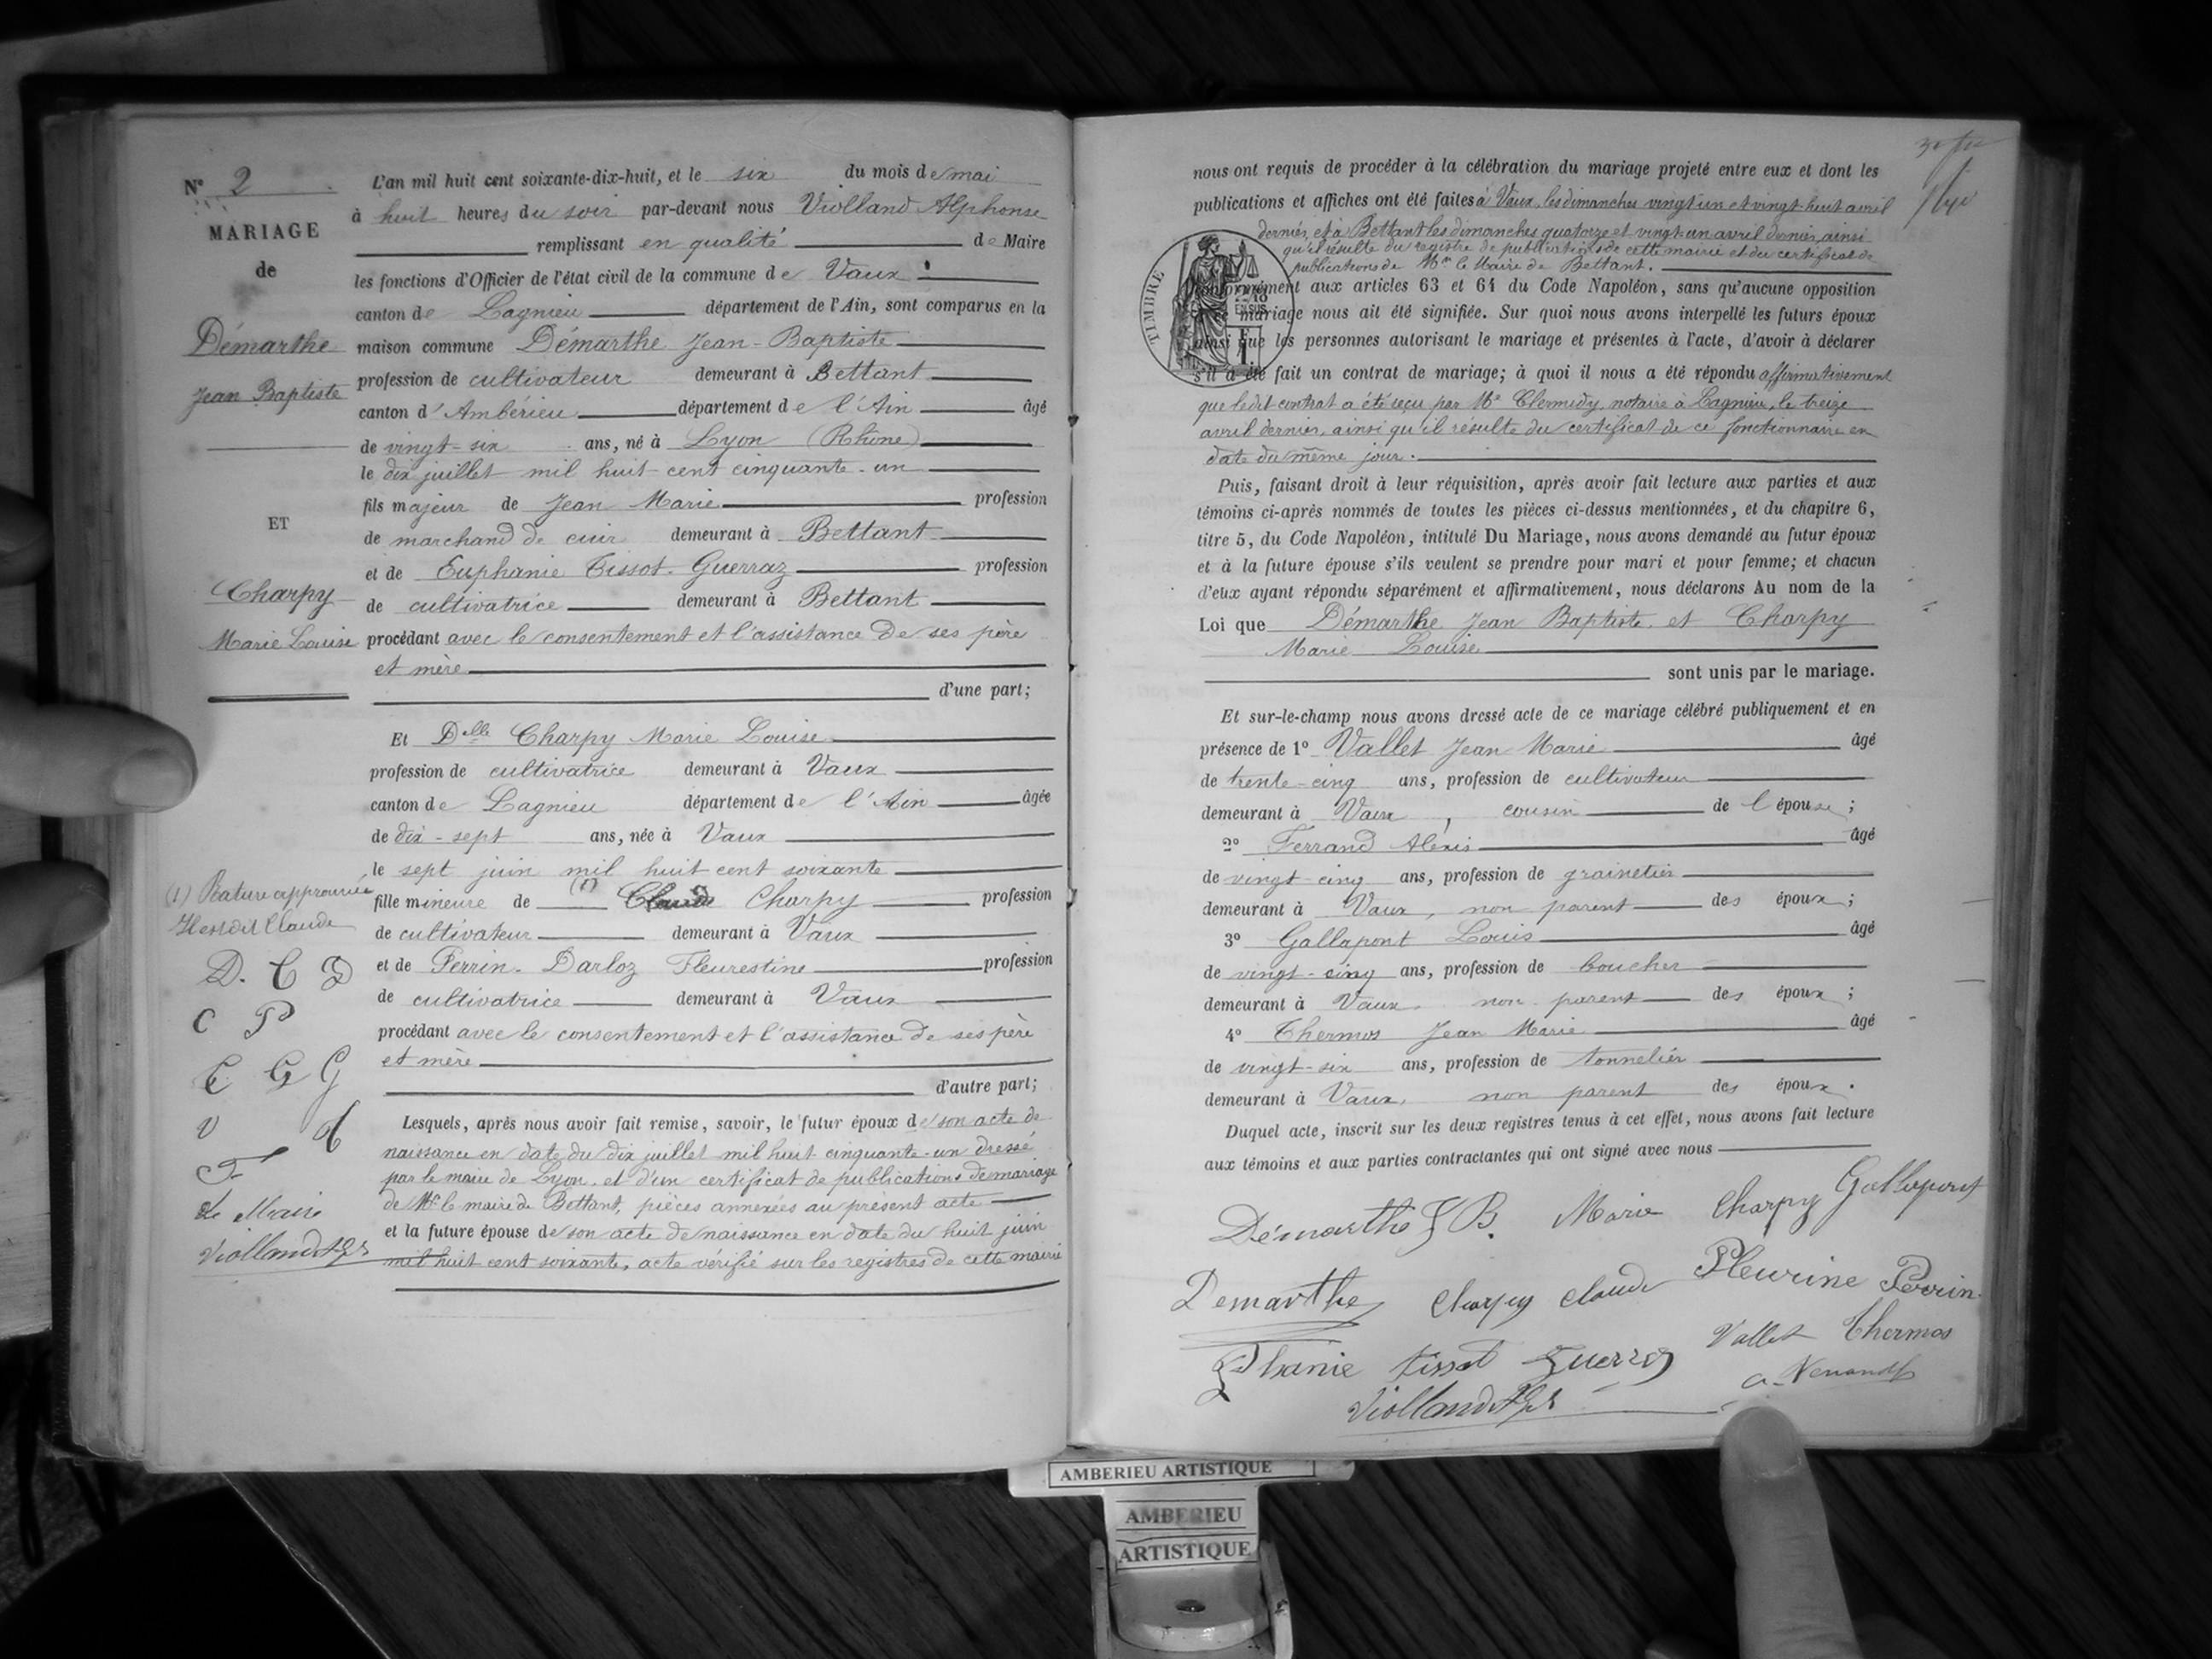 N° 2
MARIAGE
de
Démarthe
Jean Baptiste
ET
Charpy
Marie Louise
(1) Rature approuvée
Claude
D. C D
C P
C G G
V C
F
Le Maire
Violland
L'an mil huit cent soixante-dix-huit, et le six du mois de mai
à huit heures du soir par-devant nous Violland Alphonse
remplissant en qualité de Maire
les fonctions d'Officier de l'état civil de la commune de Vaux
canton de Lagnieu département de l'Ain, sont comparus en la
maison commune Démarthe Jean-Baptiste
profession de cultivateur demeurant à Bettant
canton d'Ambérieu département de l'Ain âgé
de vingt-six ans, né à Lyon (Rhône)
le dix juillet mil huit cent cinquante-un
fils majeur de Jean Marie profession
de marchand de cuir demeurant à Bettant
et de Euphanie Tissot-Guerraz profession
de cultivatrice demeurant à Bettant
procédant avec le consentement et l'assistance de ses père
et mère
d'une part;
Et Delle Charpy Marie Louise
profession de cultivatrice demeurant à Vaux
canton de Lagnieu département de l'Ain âgée
de dix-sept ans, née à Vaux
le sept juin mil huit cent soixante
fille mineure de (1) Claude Charpy profession
de cultivateur demeurant à Vaux
et de Perrin-Darloz Fleurestine profession
de cultivatrice demeurant à Vaux
procédant avec le consentement et l'assistance de ses père
et mère
d'autre part;
Lesquels, après nous avoir fait remise, savoir, le futur époux de son acte de
naissance en date du dix juillet mil huit cinquante-un dressé
par le maire de Lyon, et d'un certificat de publications de mariage
de Mr le maire de Bettant, pièces annexées au présent acte
et la future épouse de son acte de naissance en date du huit juin
mil huit cent soixante, acte vérifié sur les registres de cette mairie
nous ont requis de procéder à la célébration du mariage projeté entre eux et dont les
publications et affiches ont été faites à Vaux, les dimanches vingt un et vingt-huit avril
dernier, et à Bettant les dimanches quatorze et vingt-un avril dernier, ainsi
qu'il résulte du registre de publications de cette mairie et du certificat de
publications de Mr le Maire de Bettant.
TIMBRE
2/10
EN SUS
conformément aux articles 63 et 64 du Code Napoléon, sans qu'aucune opposition
mariage nous ait été signifiée. Sur quoi nous avons interpellé les futurs époux
ainsi que les personnes autorisant le mariage et présentes à l'acte, d'avoir à déclarer
s'il a été fait un contrat de mariage; à quoi il nous a été répondu affirmativement
que ledit contrat a été reçu par Me Clermidy, notaire à Lagnieu, le treize
avril dernier, ainsi qu'il résulte du certificat de ce fonctionnaire en
date du même jour.
Puis, faisant droit à leur réquisition, après avoir fait lecture aux parties et aux
témoins ci-après nommés de toutes les pièces ci-dessus mentionnées, et du chapitre 6,
titre 5, du Code Napoléon, intitulé Du Mariage, nous avons demandé au futur époux
et à la future épouse s'ils veulent se prendre pour mari et pour femme; et chacun
d'eux ayant répondu séparément et affirmativement, nous déclarons Au nom de la
Loi que Démarthe Jean Baptiste et Charpy
Marie Louise
sont unis par le mariage.
Et sur-le-champ nous avons dressé acte de ce mariage célébré publiquement et en
présence de 1° Vallet Jean Marie âgé
de trente-cinq ans, profession de cultivateur
demeurant à Vaux, cousin de l'épouse;
2° Ferrand Alexis âgé
de vingt-cinq ans, profession de grainetier
demeurant à Vaux, non parent des époux;
3° Gallapont Louis âgé
de vingt-cinq ans, profession de boucher
demeurant à Vaux, non parent des époux;
4° Thermos Jean Marie âgé
de vingt-six ans, profession de tonnelier
demeurant à Vaux, non parent des époux.
Duquel acte, inscrit sur les deux registres tenus à cet effet, nous avons fait lecture
aux témoins et aux parties contractantes qui ont signé avec nous
Démarthe J B. Marie Charpy Gallapont
Demarthe Charpy Claude Fleurine Perrin
Phanie tissot Guerraz Vallet Thermos
Violland
AMBERIEU ARTISTIQUE
AMBERIEU
ARTISTIQUE